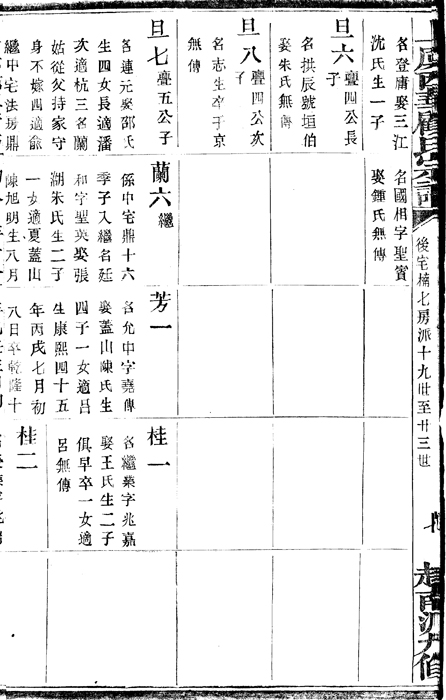 後宅楠七房派十九世至廿三世
名登庸娶三江
沈氏生一子
名國相字聖賓
娶鍾氏無傳
旦六 疊四公長子
名拱辰號垣伯
娶朱氏無傳
旦八 疊四公次子
名志生卒于京
無傳
旦七 疊五公子
名連元娶邵氏
生四女長適潘
次適杭三名蘭
姑從父持家守
身不嫁四適俞
繼中宅法房鼎
蘭六 繼
係中宅鼎十六
季子入繼名廷
和字聖英娶張
湖朱氏生二子
一女適夏蓋山
陳旭明生八月
芳一
名允中字堯傳
娶蓋山陳氏生
四子一女適呂
生康熙四十五
年丙戌七月初
八日卒乾隆十
桂一
名繼業字兆嘉
娶王氏生二子
俱早卒一女適
呂無傳
桂二